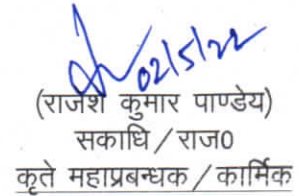 02/5/22
(राजेश कुमार पाण्डेय)
सकाधि / राज0
कृते महाप्रबन्धक / कार्मिक